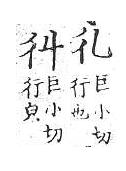 巨小切
行也
巨小切
行皃